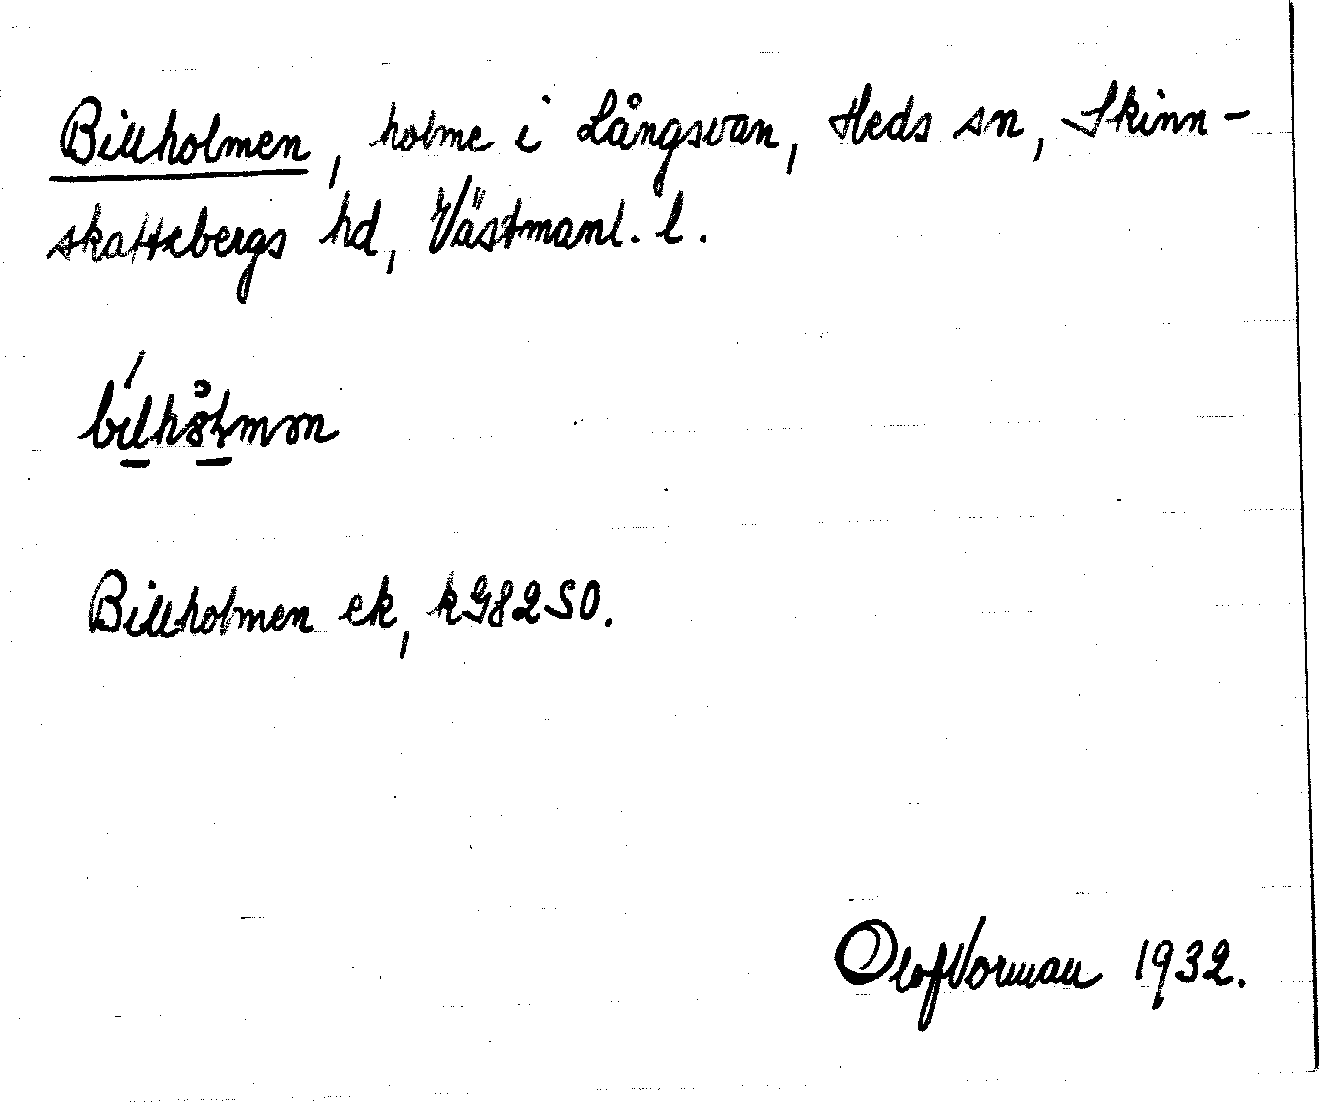 Billholmen, holme i Långsvan, Heds sn, Skinn-
skattebergs hd, Västmanl. l.
Billholmen ek, k G8250.
Olof Norman 1932.